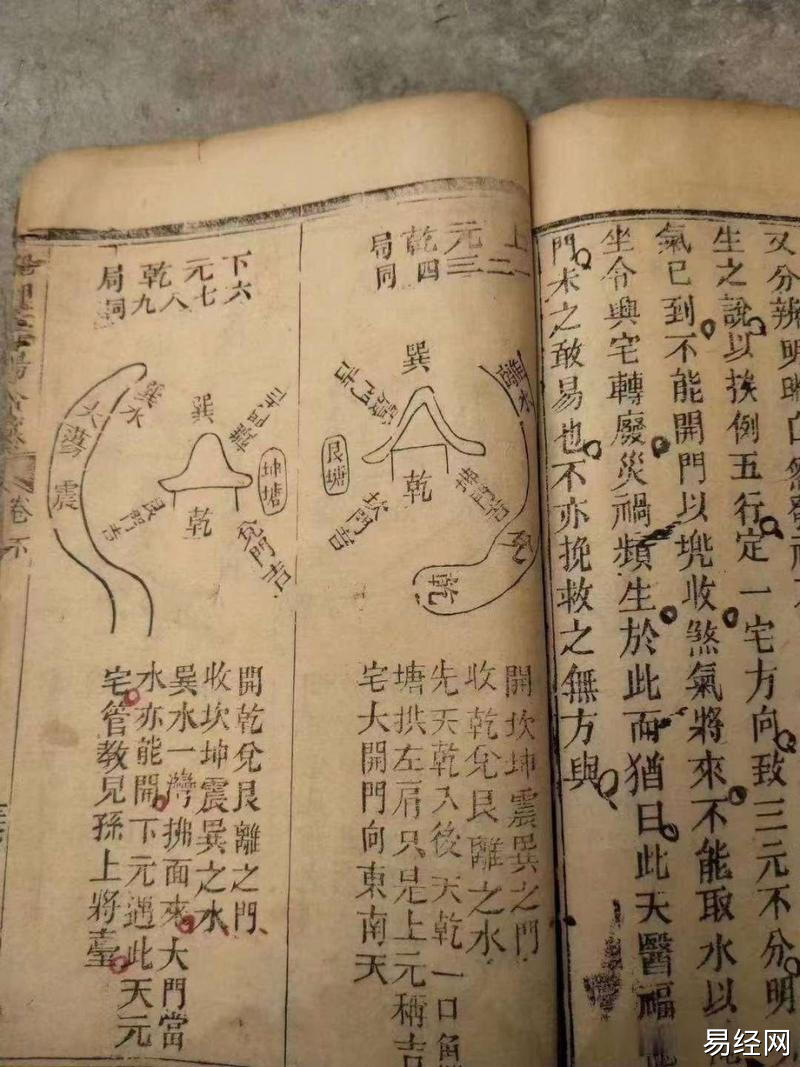 又分辨明
生之說以挨例五行定一宅方向致三元不分明
氣已到不能開門以兜收煞氣將來不能取水以
坐令與宅轉廢災禍頻生於此而猶曰此天醫福
門未之敢易也不亦挽救之無方與
上一二
元三
乾四
局同
離水
巽
震門吉
艮塘
乾
坤門吉
坎門吉
兌
乾
開坎坤震巽之門
收乾兌艮離之水
先天乾入後天乾一口
塘拱左肩只是上元稱吉
宅大開門向東南天
下六
元七
乾八九
局同
巽水
大灣
震
巽
離門吉
坤塘
乾
艮門吉
兌門吉
開乾兌艮離之門
收坎坤震巽之水
巽水一灣拂面來大門當
水亦能開下元遇此天元
宅管教兒孫上將臺
卷下
易经网